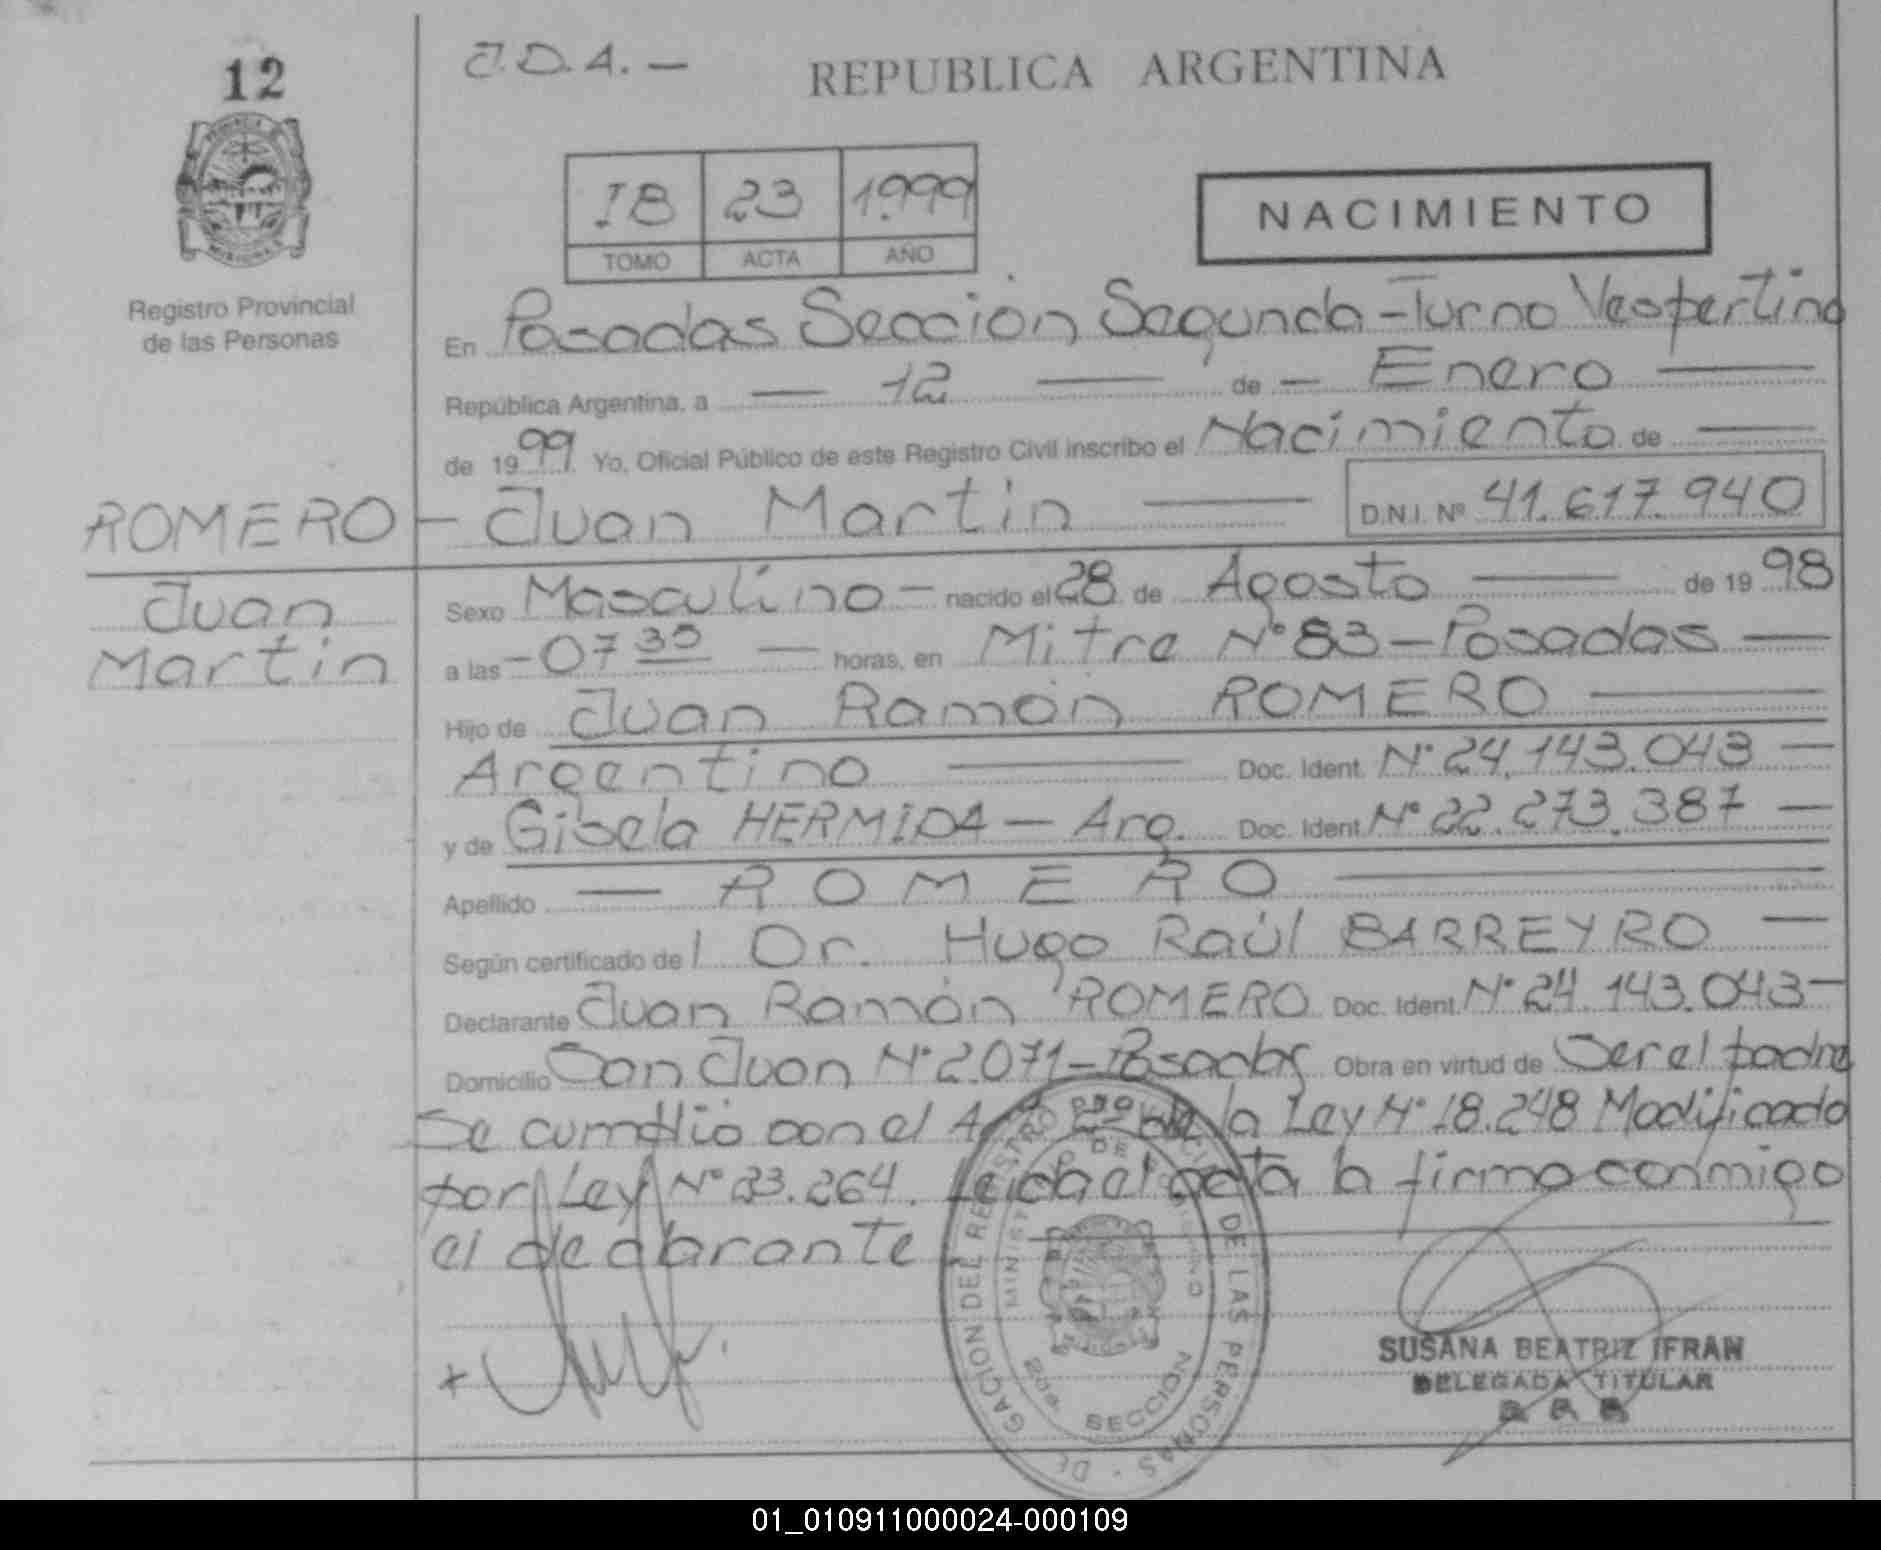 12
J.D.A. —
REPUBLICA ARGENTINA
PROVINCIA DE MISIONES
IB 23 1.999
TOMO ACTA AÑO
NACIMIENTO
Registro Provincial
de las Personas
En Posadas Sección Segunda - Turno Vespertino
República Argentina, a — 12 — de — Enero —
de 1999 Yo, Oficial Público de este Registro Civil inscribo el Nacimiento de —
ROMERO — Juan Martin — D.N.I. Nº 41.617.940
Juan
Martin
Sexo Masculino — nacido el 28 de Agosto — de 1998
a las — 07 30 — horas, en Mitre N° 83 — Posadas —
Hijo de Juan Ramón ROMERO —
Argentino — Doc. Ident. N° 24.143.043 —
y de Gisela HERMIDA — Arg. Doc. Ident. N° 22.273.387 —
Apellido — ROMERO —
Según certificado de l Dr. Hugo Raúl BARREYRO —
Declarante Juan Ramón ROMERO Doc. Ident. N° 24.143.043 —
Domicilio San Juan N° 2.071 — Posadas Obra en virtud de Ser el padre
Se cumplió con el de la Ley N° 18.248 Modificado
por Ley N° 23.264. Leída el acta la firma conmigo
el declarante
DELEGACION DEL REGISTRO PROVINCIAL DE LAS PERSONAS
MINISTERIO DE GOBIERNO
2da. SECCION
SUSANA BEATRIZ IFRAN
DELEGADA TITULAR
01_010911000024-000109